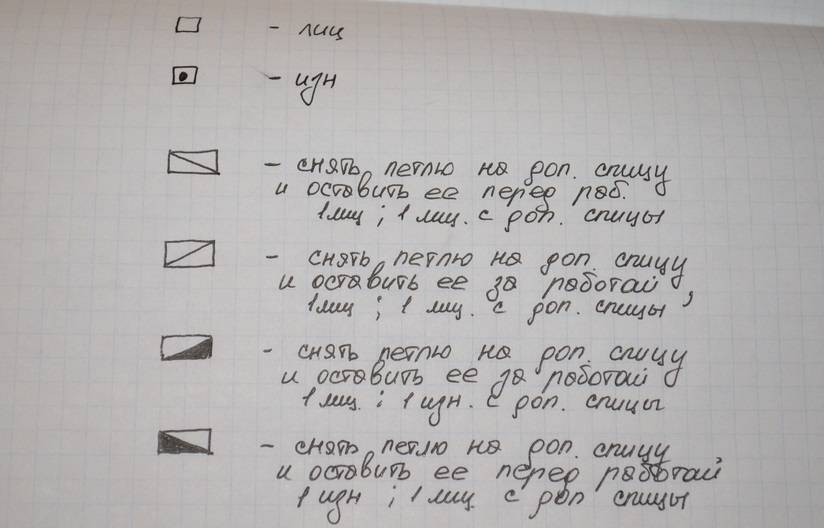 - лиц
- изн
- снять петлю на доп. спицу
и оставить ее перед раб.
1 лиц ; 1 лиц. с доп. спицы
- снять петлю на доп. спицу
и оставить ее за работай ,
1 лиц ; 1 лиц. с доп. спицы
- снять петлю на доп. спицу
и оставить ее за работай
1 лиц. ; 1 изн. с доп. спицы
- снять петлю на доп. спицу
и оставить ее перед работай
1 изн ; 1 лиц. с доп спицы